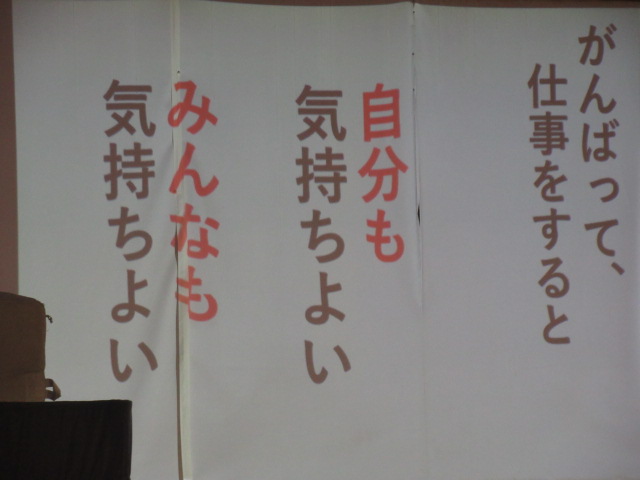 がんばって、
仕事をすると
自分も
気持ちよい
みんなも
気持ちよい